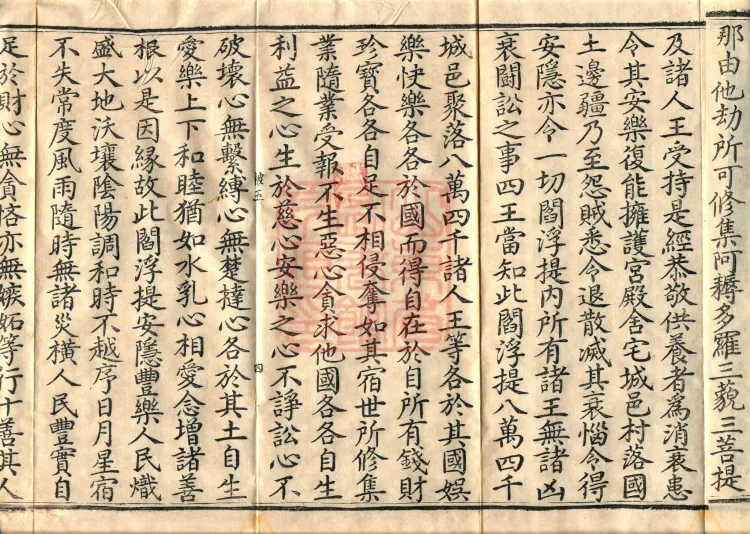 那由他劫所可修集阿耨多羅三藐三菩提
及諸人王受持是經恭敬供養者為消衰患
令其安樂復能擁護宮殿舍宅城邑村落國
土邊疆乃至怨賊悉令退散滅其衰惱令得
安隱亦令一切閻浮提內所有諸王無諸凶
衰鬪訟之事四王當知此閻浮提八萬四千
城邑聚落八萬四千諸人王等各於其國娛
樂快樂各各於國而得自在於自所有錢財
珍寶各各自足不相侵奪如其宿世所修集
業隨業受報不生惡心貪求他國各各自生
利益之心生於慈心安樂之心不諍訟心不
破壞心無繫縛心無楚撻心各於其土自生
愛樂上下和睦猶如水乳心相愛念增諸善
根以是因緣故此閻浮提安隱豐樂人民熾
盛大地沃壤陰陽調和時不越序日月星宿
不失常度風雨隨時無諸災橫人民豐實自
足於財心無貪悋亦無嫉妬等行十善其人
四